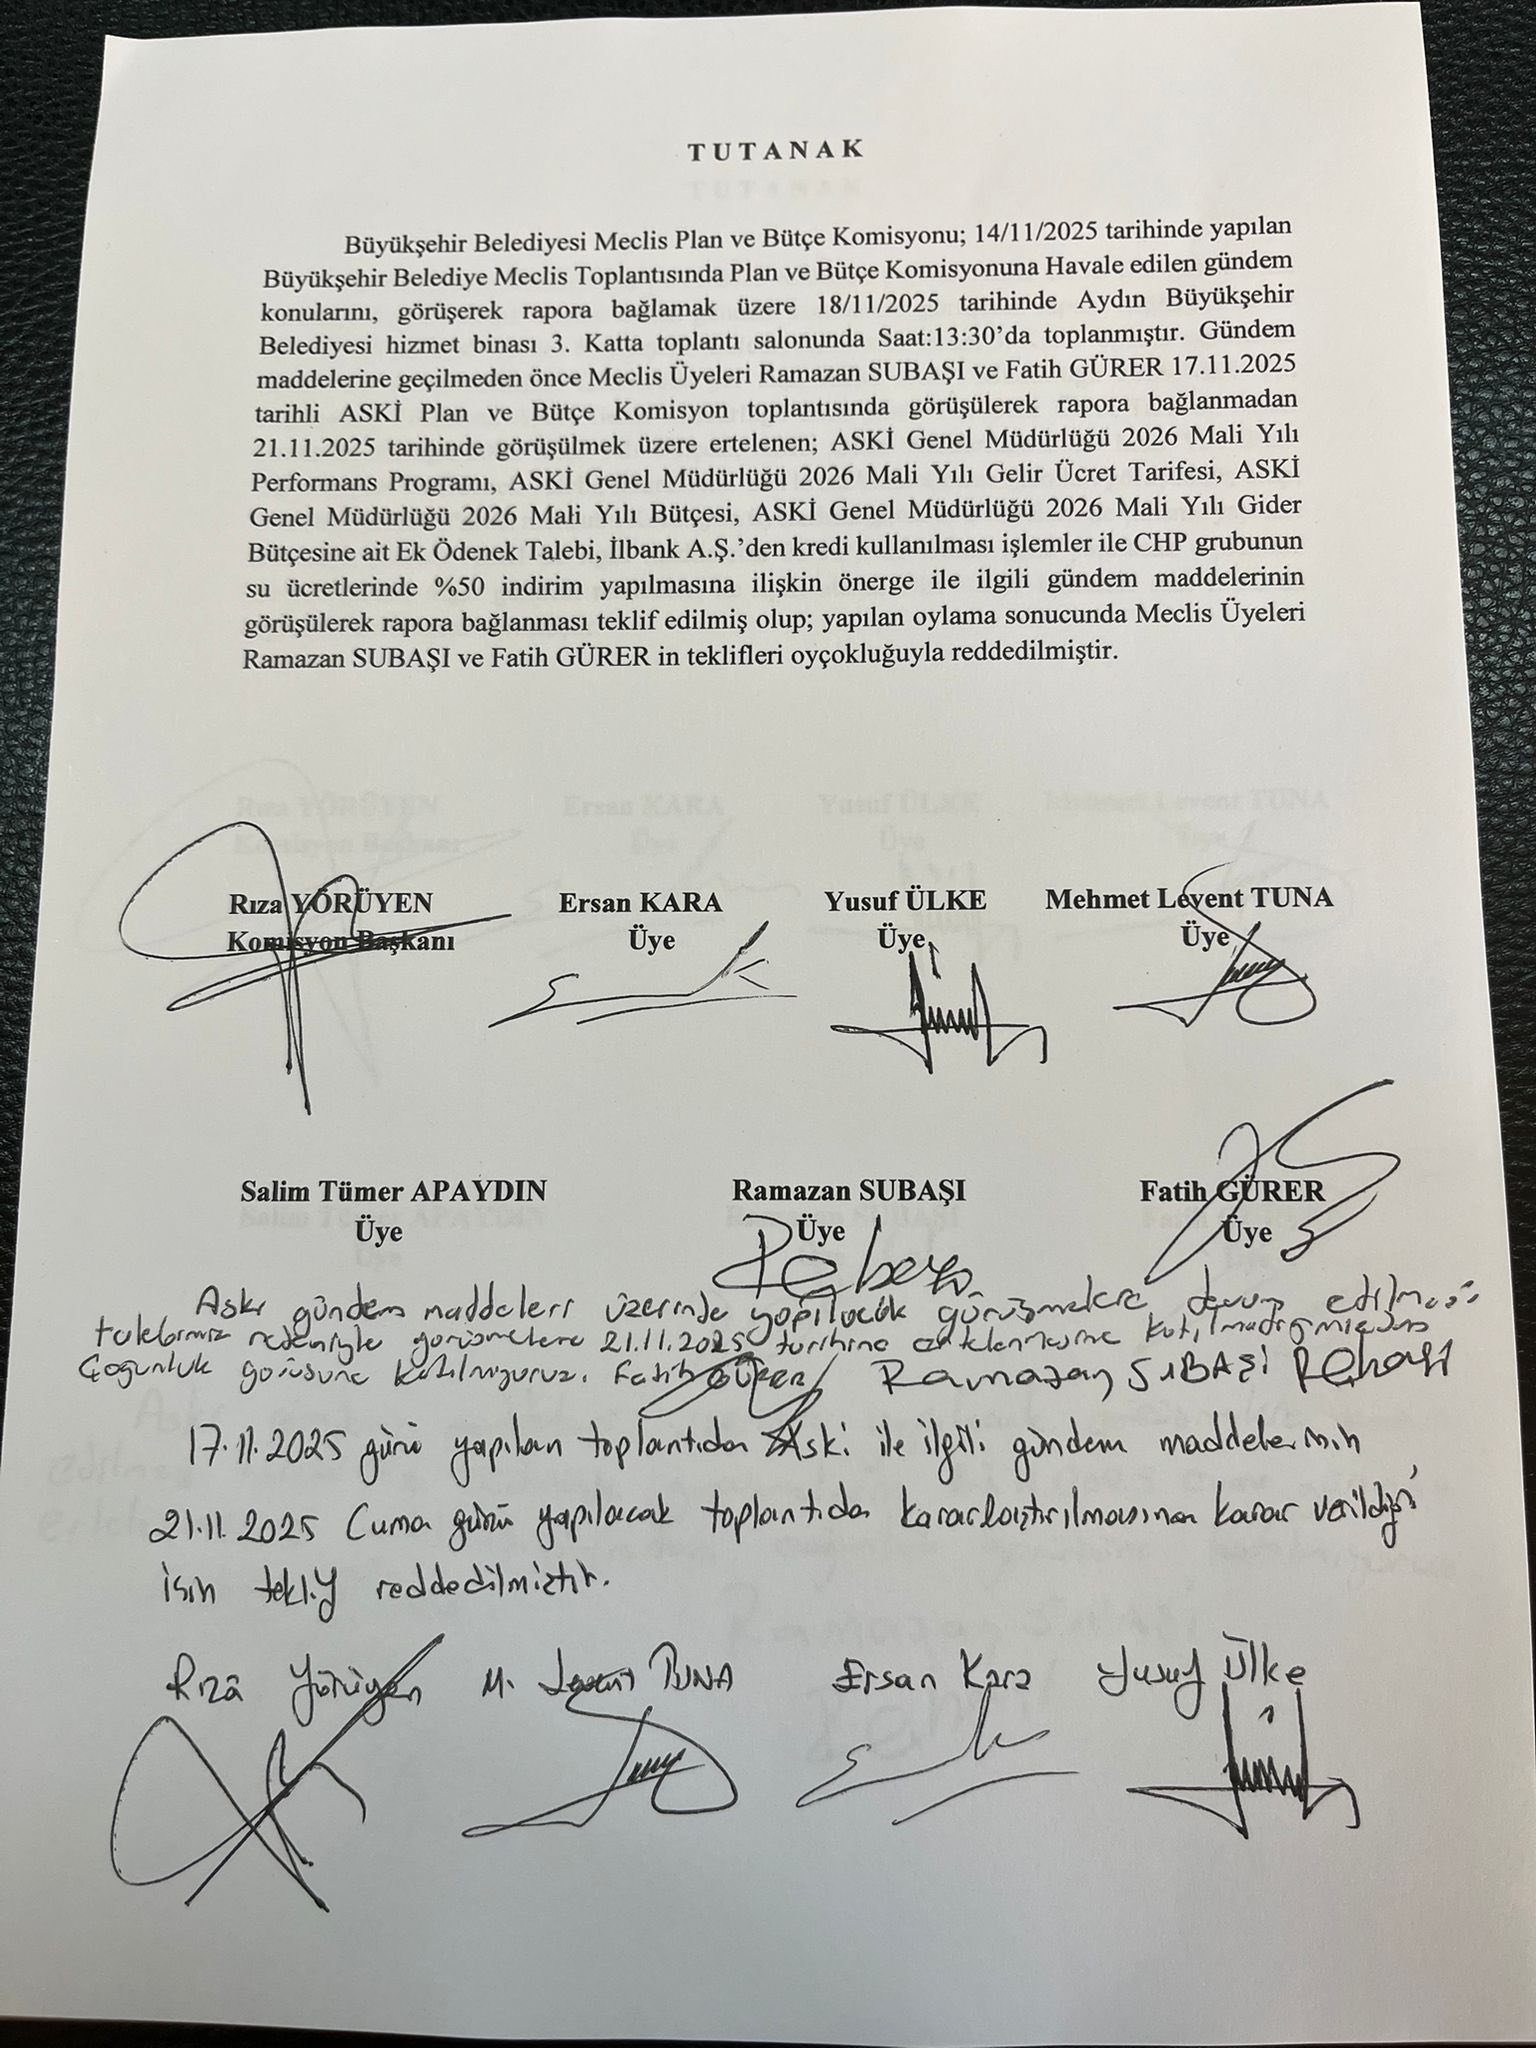 TUTANAK
Büyükşehir Belediyesi Meclis Plan ve Bütçe Komisyonu; 14/11/2025 tarihinde yapılan
Büyükşehir Belediye Meclis Toplantısında Plan ve Bütçe Komisyonuna Havale edilen gündem
konularını, görüşerek rapora bağlamak üzere 18/11/2025 tarihinde Aydın Büyükşehir
Belediyesi hizmet binası 3. Katta toplantı salonunda Saat:13:30’da toplanmıştır. Gündem
maddelerine geçilmeden önce Meclis Üyeleri Ramazan SUBAŞI ve Fatih GÜRER 17.11.2025
tarihli ASKİ Plan ve Bütçe Komisyon toplantısında görüşülerek rapora bağlanmadan
21.11.2025 tarihinde görüşülmek üzere ertelenen; ASKİ Genel Müdürlüğü 2026 Mali Yılı
Performans Programı, ASKİ Genel Müdürlüğü 2026 Mali Yılı Gelir Ücret Tarifesi, ASKİ
Genel Müdürlüğü 2026 Mali Yılı Bütçesi, ASKİ Genel Müdürlüğü 2026 Mali Yılı Gider
Bütçesine ait Ek Ödenek Talebi, İlbank A.Ş.’den kredi kullanılması işlemler ile CHP grubunun
su ücretlerinde %50 indirim yapılmasına ilişkin önerge ile ilgili gündem maddelerinin
görüşülerek rapora bağlanması teklif edilmiş olup; yapılan oylama sonucunda Meclis Üyeleri
Ramazan SUBAŞI ve Fatih GÜRER in teklifleri oyçokluğuyla reddedilmiştir.
Rıza YÖRÜYEN Ersan KARA Yusuf ÜLKE Mehmet Levent TUNA
Komisyon Başkanı Üye Üye Üye
Salim Tümer APAYDIN Ramazan SUBAŞI Fatih GÜRER
Üye Üye Üye
Askı gündem maddeleri üzerinde yapılacak görüşmelere devam edilmesi
talebimiz nedeniyle görüşmelere 21.11.2025 tarihine ertelenmesine katılmadığımızdan
Çoğunluk görüşüne katılmıyoruz. Fatih GÜRER Ramazan SUBAŞI
17.11.2025 günü yapılan toplantıda Aski ile ilgili gündem maddelerinin
21.11.2025 Cuma günü yapılacak toplantıda kararlaştırılmasına karar verildiği
için teklif reddedilmiştir.
Rıza Yörüyen M. Levent TUNA Ersan Kara Yusuf Ülke